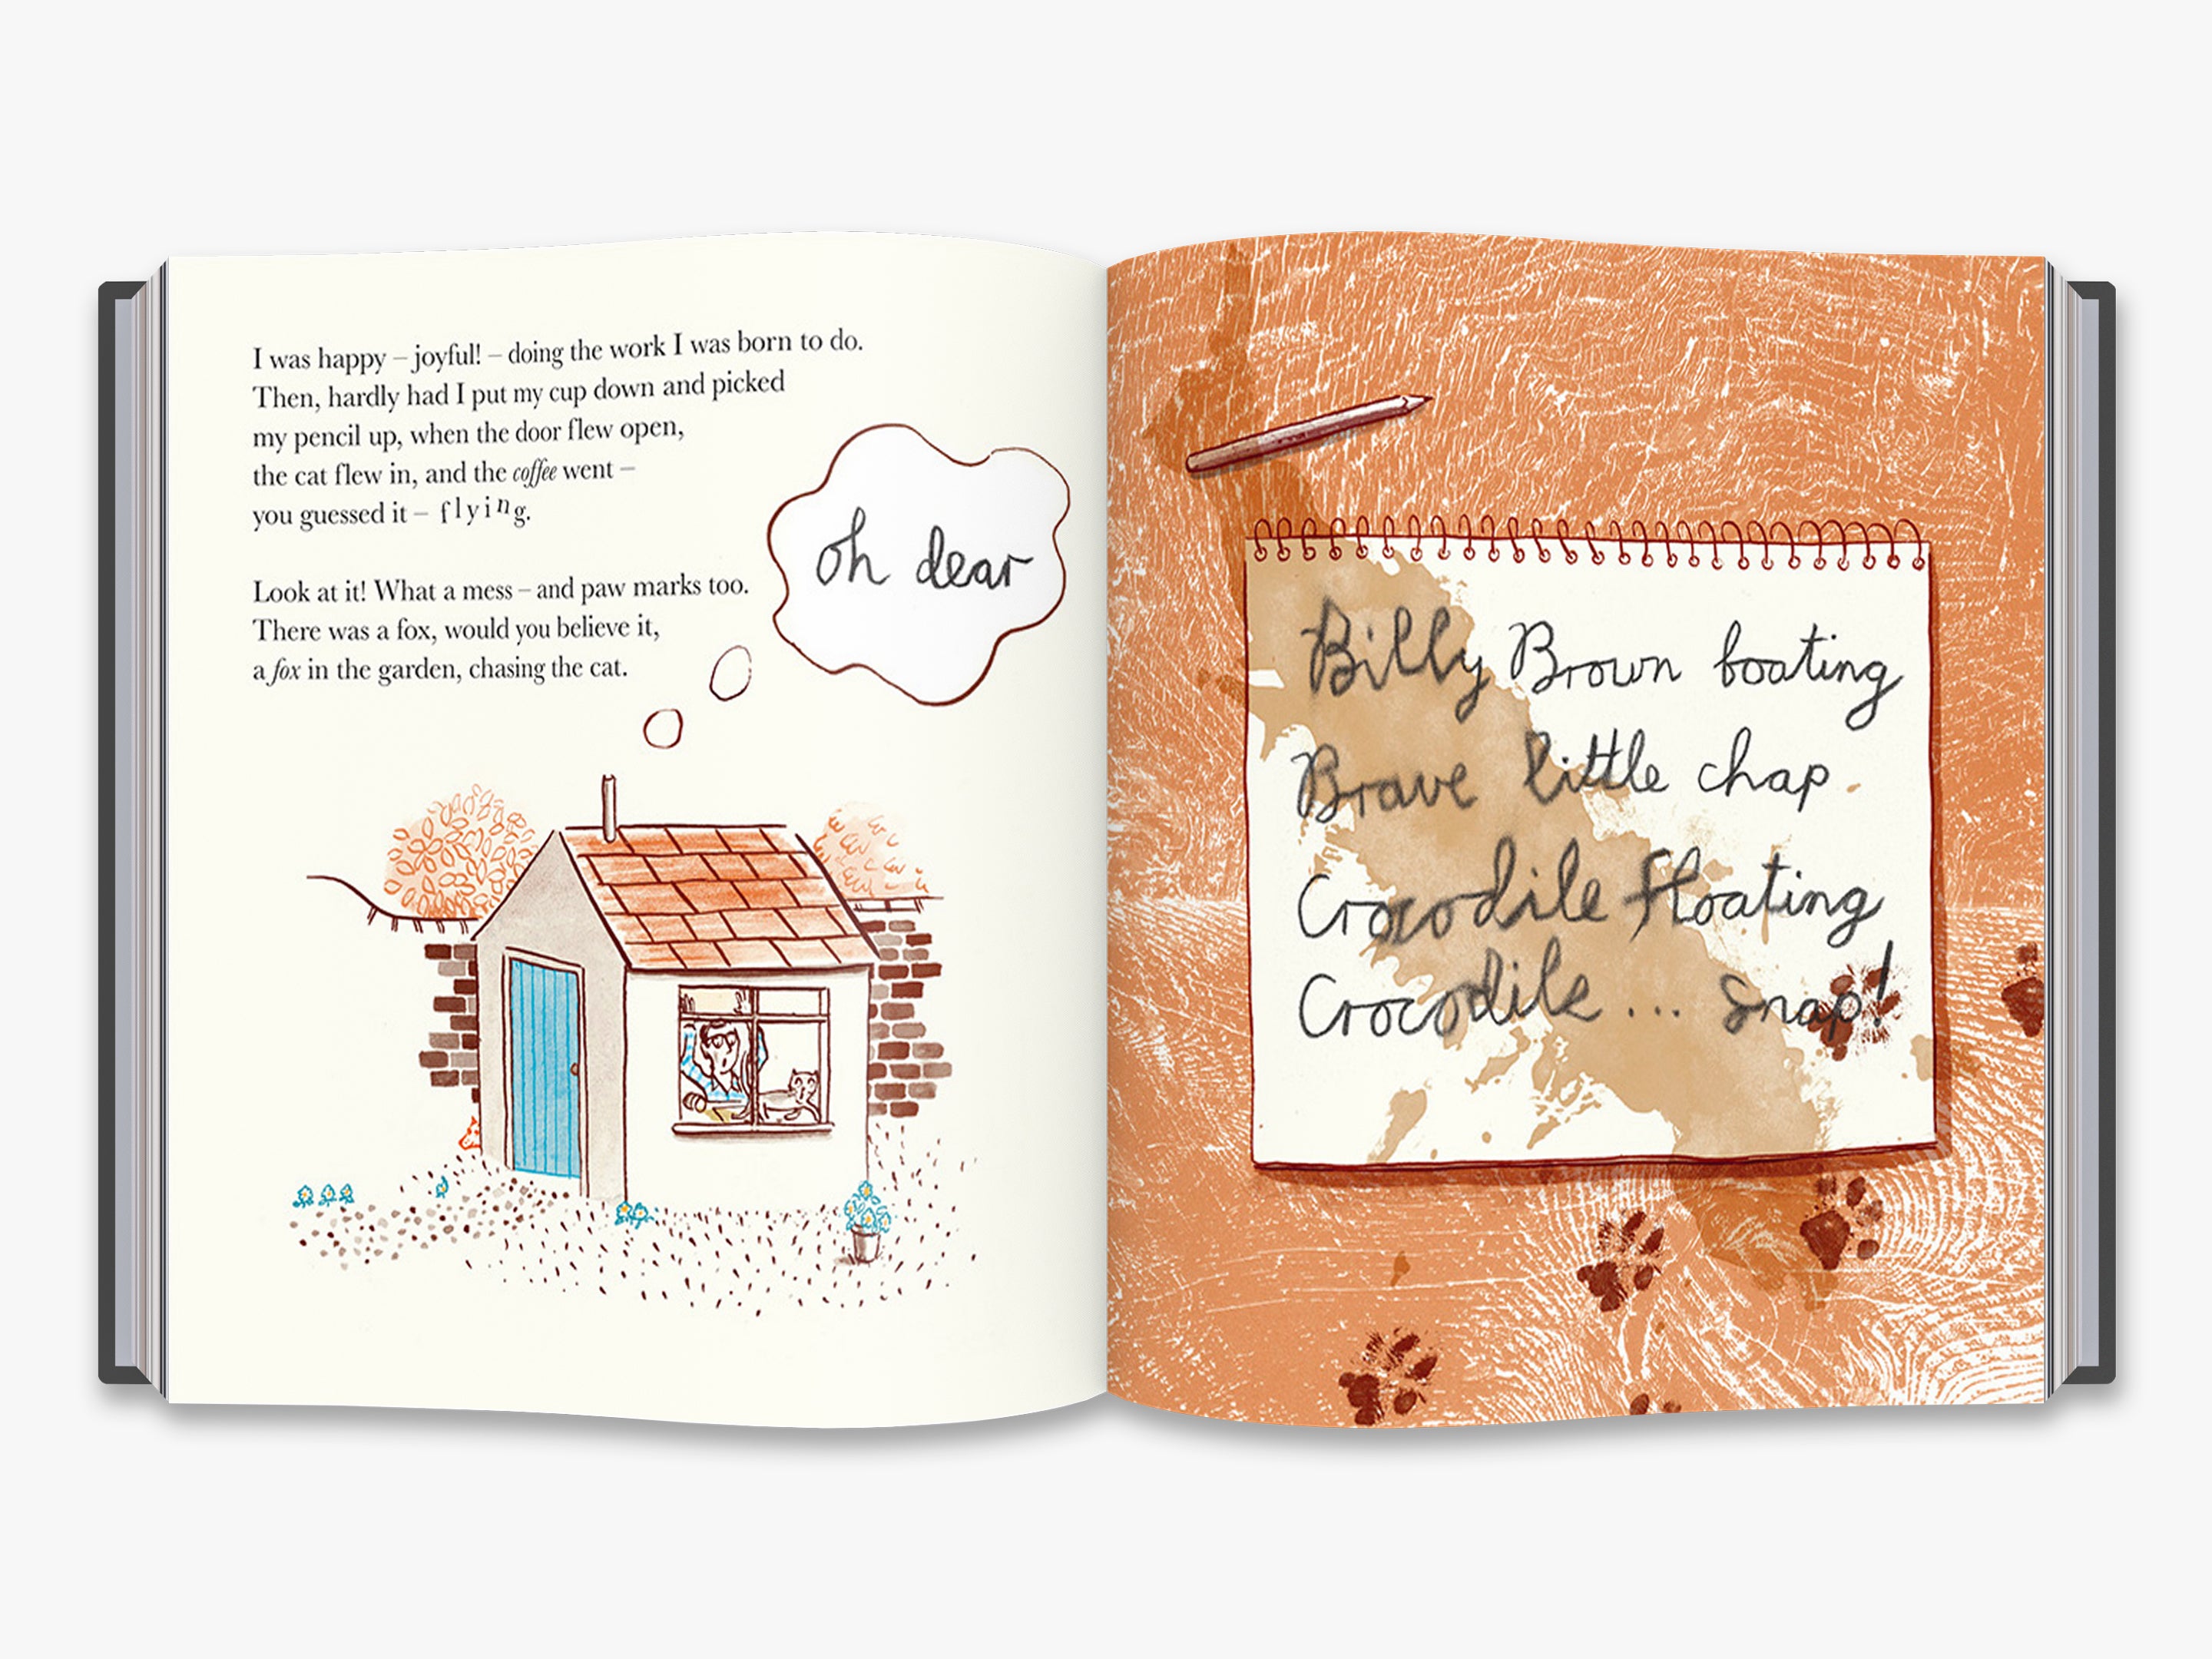 I was happy – joyful! – doing the work I was born to do.
Then, hardly had I put my cup down and picked
my pencil up, when the door flew open,
the cat flew in, and the coffee went –
you guessed it – flying.
Look at it! What a mess – and paw marks too.
There was a fox, would you believe it,
a fox in the garden, chasing the cat.
oh dear
Billy Brown boating
Brave little chap
Crocodile floating
Crocodile... snap!